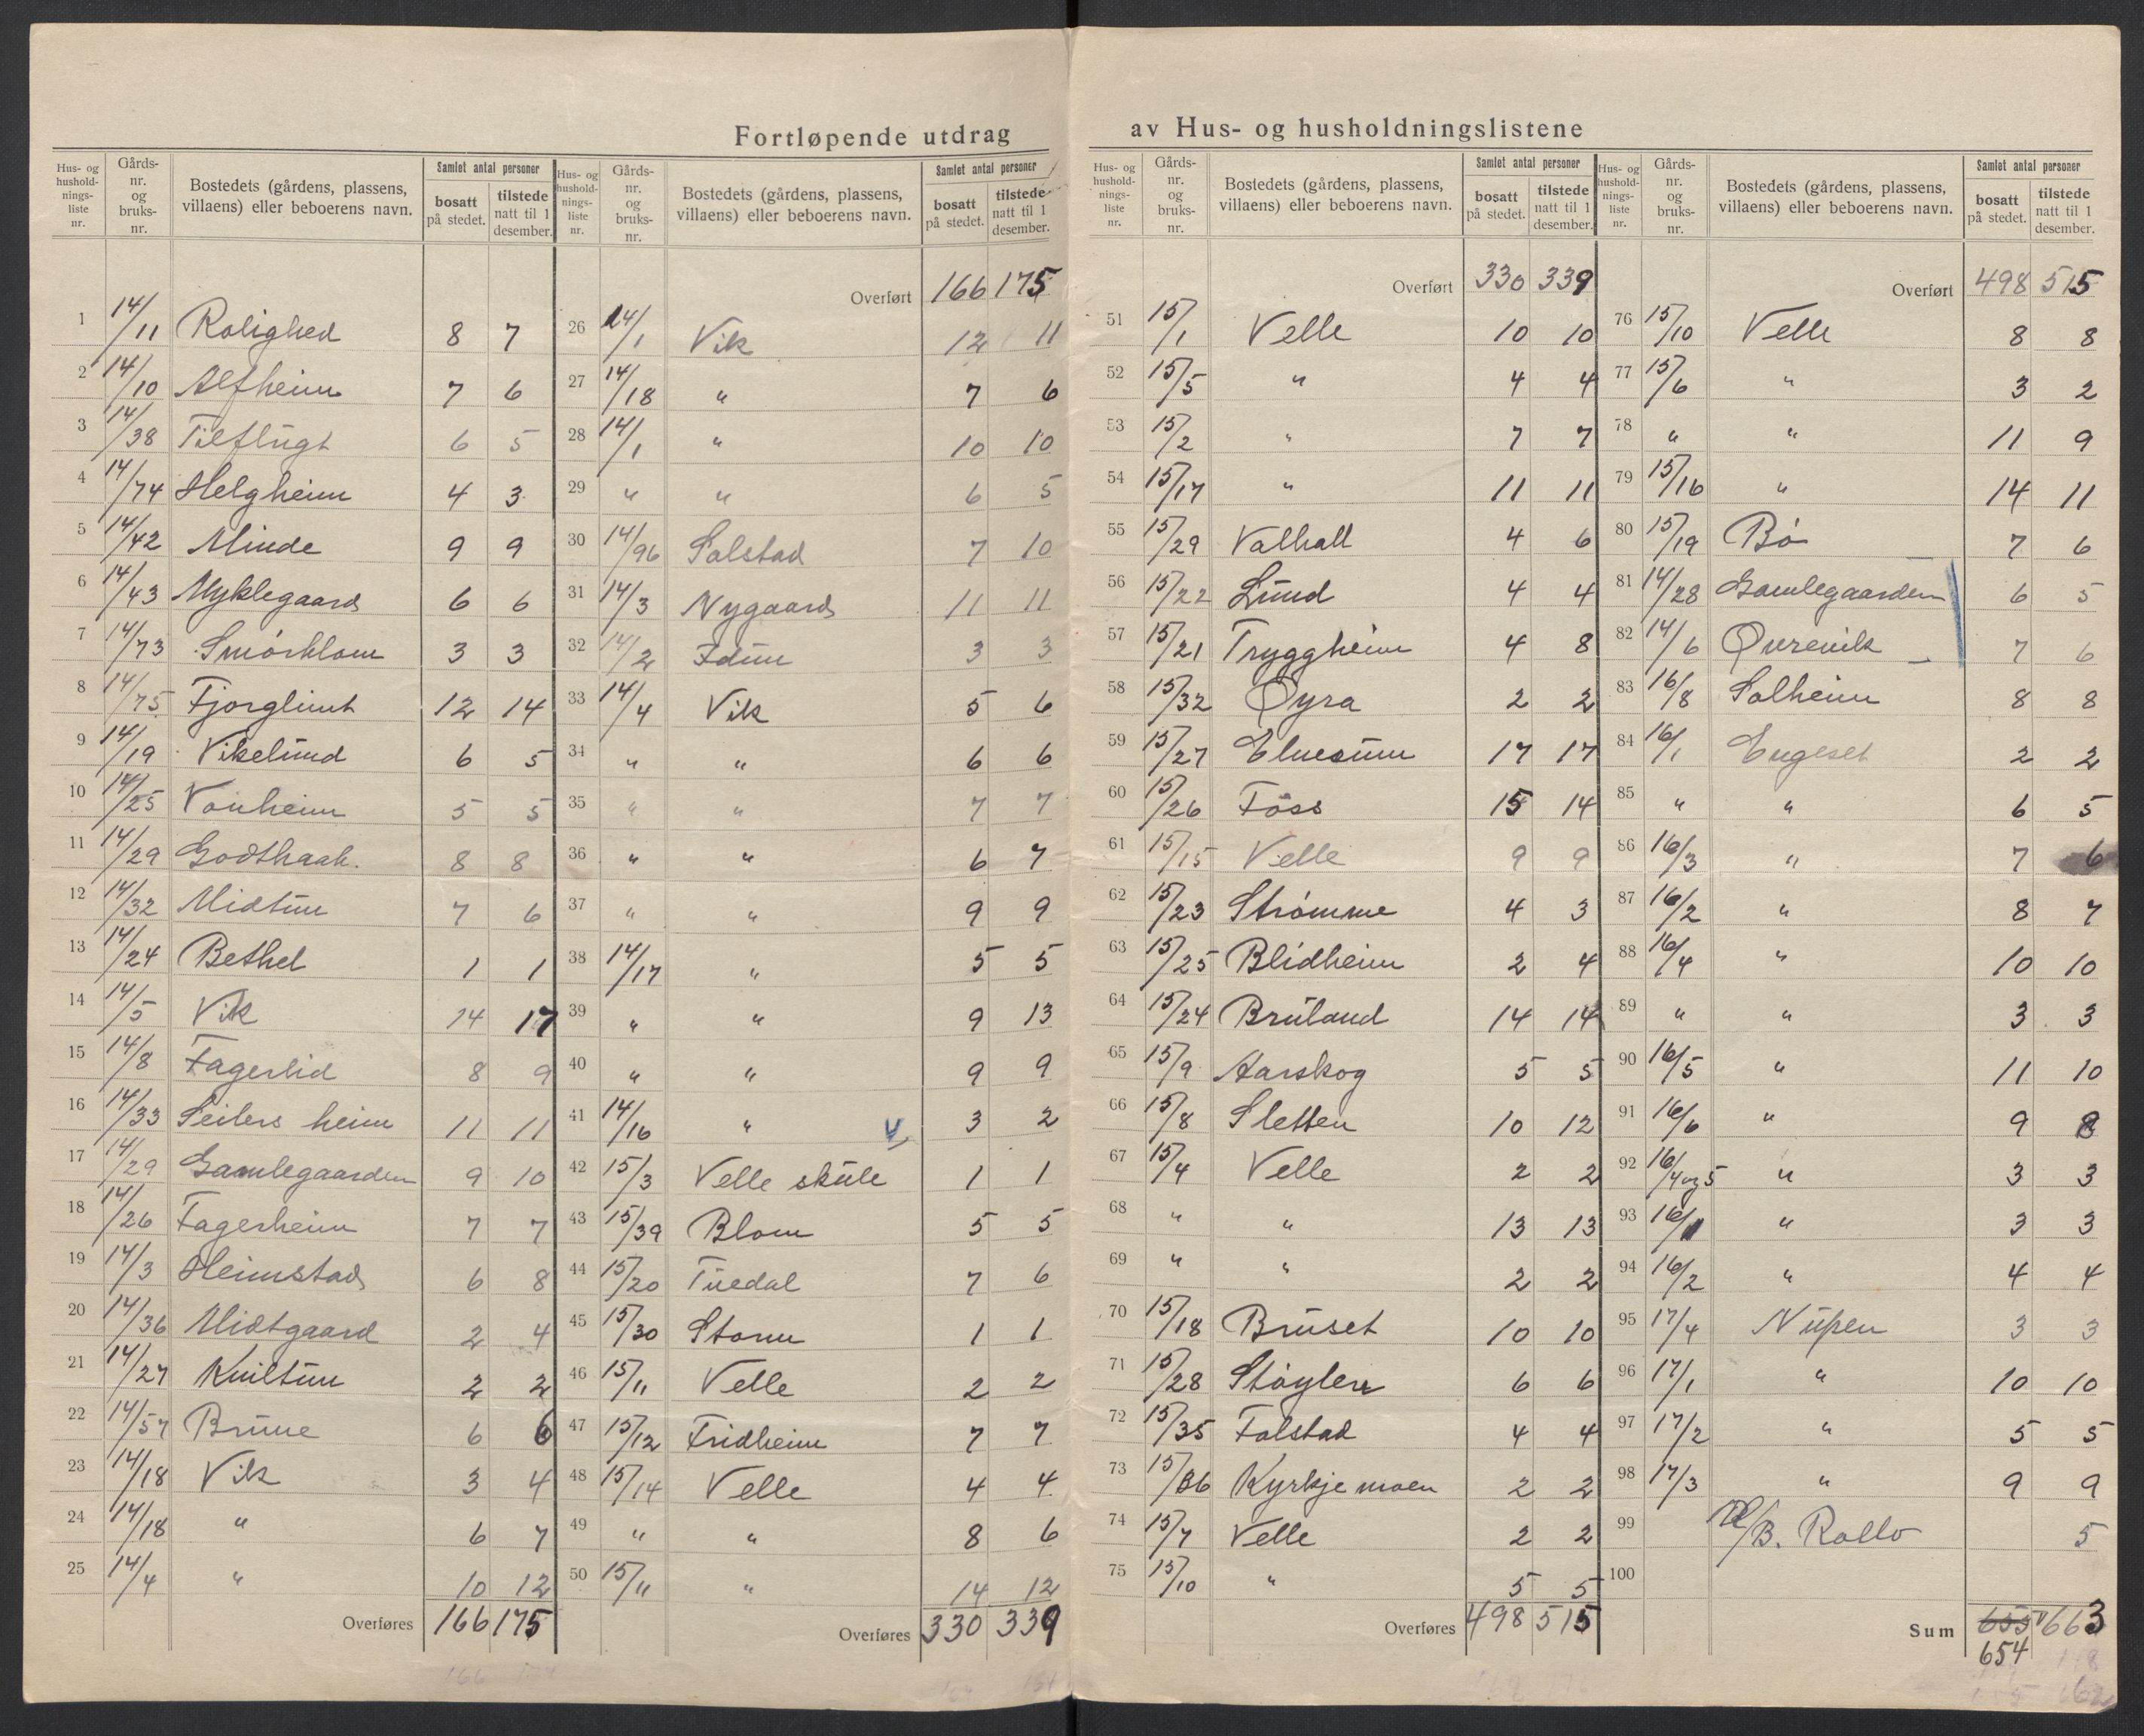 Fortløpende utdrag av Hus- og husholdningslistene
Hus- og hushold-nings-liste nr. | Gårds-nr. og bruks-nr. | Bostedets (gårdens, plassens, villaens) eller beboerens navn. | Samlet antal personer: bosatt på stedet. | tilstede natt til 1 desember.
1 14/11 Rolighed 8 7
2 14/10 Alfheim 7 6
3 14/38 Tilflugt 6 5
4 14/74 Helgheim 4 3
5 14/42 Minde 9 9
6 14/43 Myklegaard 6 6
7 14/73 Smørblom 3 3
8 14/75 Fjorglimt 12 14
9 14/19 Vikelund 6 5
10 14/25 Vonheim 5 5
11 14/29 Godthaab. 8 8
12 14/32 Midtun 7 6
13 14/24 Bethel 1 1
14 14/5 Vik 14 17
15 14/8 Fagerlid 8 9
16 14/33 Seilers heim 11 11
17 14/29 Gamlegaarden 9 10
18 14/26 Fagerheim 7 7
19 14/3 Heimstad 6 8
20 14/36 Midtgaard 2 4
21 14/27 Kviltun 2 2
22 14/57 Brune 6 6
23 14/18 Vik 3 4
24 14/18 " 6 7
25 14/4 " 10 12
Overføres 166 175
Hus- og hushold-nings-liste nr. | Gårds-nr. og bruks-nr. | Bostedets (gårdens, plassens, villaens) eller beboerens navn. | Samlet antal personer: bosatt på stedet. | tilstede natt til 1 desember.
Overført 166 175
26 14/1 Vik 12 11
27 14/18 " 7 6
28 14/1 " 10 10
29 " " 6 5
30 14/96 Solstad 7 10
31 14/3 Nygaard 11 11
32 14/2 Idun 3 3
33 14/4 Vik 5 6
34 " " 6 6
35 " " 7 7
36 " " 6 7
37 " " 9 9
38 14/17 " 5 5
39 " " 9 13
40 " " 9 9
41 14/16 " 3 2
42 15/3 Velle skule 1 1
43 15/39 Blom 5 5
44 15/20 Tuedal 7 6
45 15/30 Storm 1 1
46 15/11 Velle 2 2
47 15/12 Fridheim 7 7
48 15/14 Velle 4 4
49 " " 8 6
50 15/11 " 14 12
Overføres 330 339
Hus- og hushold-nings-liste nr. | Gårds-nr. og bruks-nr. | Bostedets (gårdens, plassens, villaens) eller beboerens navn. | Samlet antal personer: bosatt på stedet. | tilstede natt til 1 desember.
Overført 330 339
51 15/1 Velle 10 10
52 15/5 " 4 4
53 15/2 " 7 7
54 15/17 " 11 11
55 15/29 Valhall 4 6
56 15/22 Lund 4 4
57 15/21 Tryggheim 4 8
58 15/32 Øyra 2 2
59 15/27 Elvesum 17 17
60 15/26 Foss 15 14
61 15/15 Velle 9 9
62 15/23 Strømme 4 3
63 15/25 Blidheim 2 4
64 15/24 Bruland 14 14
65 15/9 Aarskog 5 5
66 15/8 Sletten 10 12
67 15/4 Velle 2 2
68 " " 13 13
69 " " 2 2
70 15/18 Bruset 10 10
71 15/28 Støylen 6 6
72 15/35 Folstad 4 4
73 15/36 Kyrkjemoen 2 2
74 15/7 Velle 2 2
75 15/10 " 5 5
Overføres 498 515
Hus- og hushold-nings-liste nr. | Gårds-nr. og bruks-nr. | Bostedets (gårdens, plassens, villaens) eller beboerens navn. | Samlet antal personer: bosatt på stedet. | tilstede natt til 1 desember.
Overført 498 515
76 15/10 Velle 8 8
77 15/6 " 3 2
78 " " 11 9
79 15/16 " 14 11
80 15/19 Bø 7 6
81 14/28 Gamlegaarden 6 5
82 14/6 Øvrevik 7 6
83 16/8 Solheim 8 8
84 16/1 Engeset 2 2
85 " " 6 5
86 16/3 " 7 6
87 16/2 " 8 7
88 16/4 " 10 10
89 " " 3 3
90 16/5 " 11 10
91 16/6 " 9 8
92 16/4 og 5 " 3 3
93 16/1 " 3 3
94 16/2 " 4 4
95 17/4 Nupen 3 3
96 17/1 " 10 10
97 17/2 " 5 5
98 17/3 " 9 9
99 B. Rollo 5
100
Sum 655 663
654